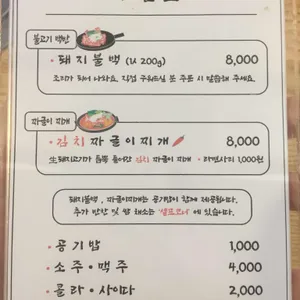 불고기 백반
· 돼지불백 (1人 200g) 8,000
조리가 되어 나와요. 직접 구워드실 분 주문 시 말씀해 주세요.
짜글이 찌개
· 김치짜글이찌개 8,000
生돼지고기가 듬뿍 들어간 김치 짜글이 찌개 · 라면사리 1,000원
돼지불백, 짜글이찌개는 공기밥이 함께 제공됩니다.
추가 반찬 및 쌈 채소는 '셀프코너'에 있습니다.
· 공기밥 1,000
· 소주·맥주 4,000
· 콜라·사이다 2,000